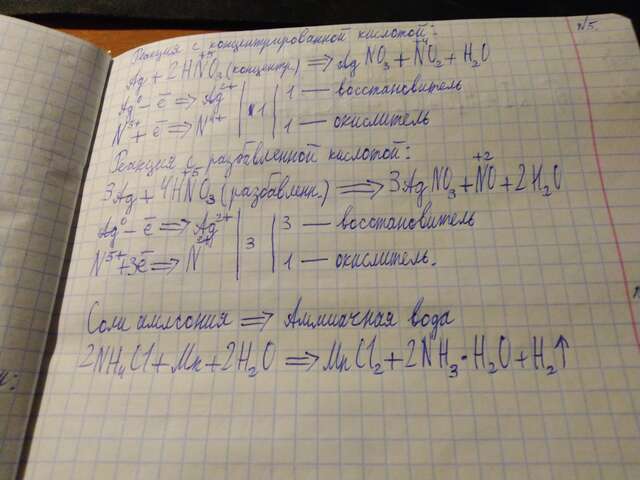 №5.
Реакция с концентрированной кислотой:
Ag + 2HN⁺⁵O₃ (концентр) ⇒ AgNO₃ + N⁺⁴O₂ + H₂O
Ag⁰ - ē ⇒ Ag⁺ | 1 | 1 — восстановитель
N⁵⁺ + ē ⇒ N⁴⁺ | | 1 — окислитель
Реакция с разбавленной кислотой:
3Ag + 4HN⁺⁵O₃ (разбавленн) ⇒ 3AgNO₃ + N⁺²O + 2H₂O
Ag⁰ - ē ⇒ Ag⁺ | 3 | 3 — восстановитель
N⁵⁺ + 3ē ⇒ N²⁺ | | 1 — окислитель.
Соли аммония ⇒ Аммиачная вода
2NH₄Cl + Mn + 2H₂O ⇒ MnCl₂ + 2NH₃·H₂O + H₂↑